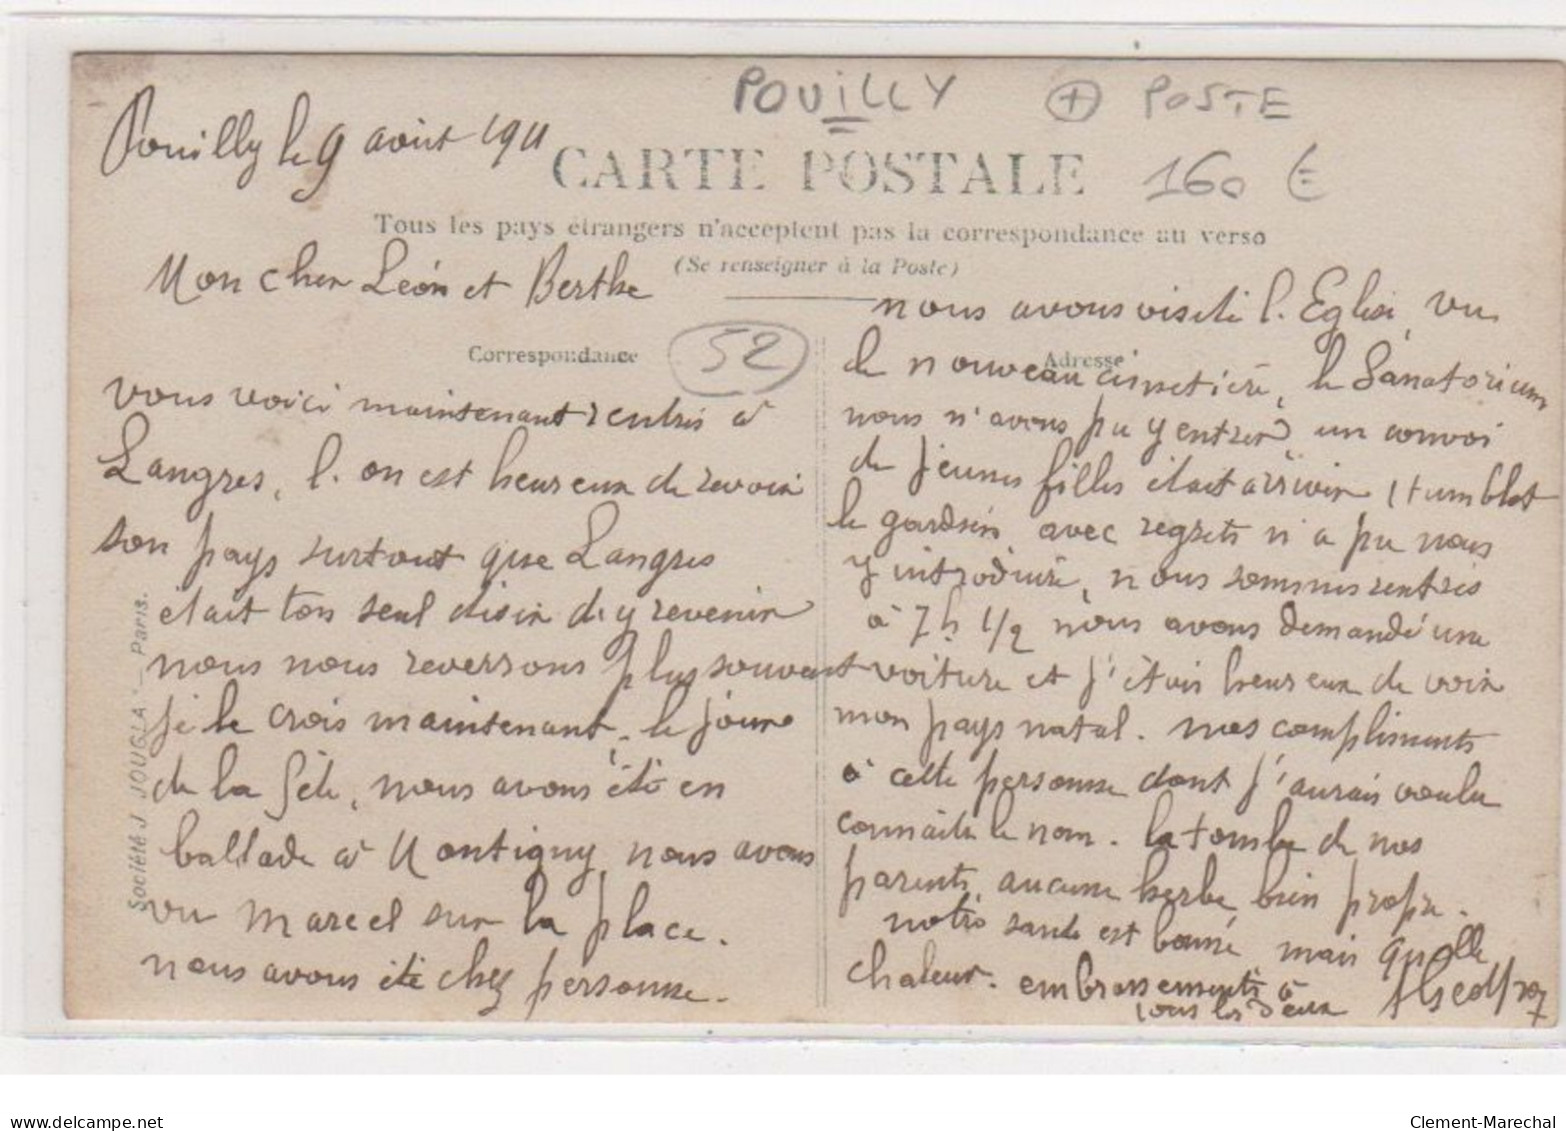 POUILLY + POSTE
160 €
Pouilly le 9 août 1911
CARTE POSTALE
Tous les pays étrangers n'acceptent pas la correspondance au verso
(Se renseigner à la Poste)
Mon cher Léon et Berthe
Correspondance
52
vous voici maintenant rentrés à
Langres, l'on est heureux de revoir
son pays surtout que Langres
était ton seul désir d'y revenir
nous nous reverrons plus souvent
je le crois maintenant, le jour
de la fête, nous avons été en
ballade à Montigny, nous avons
vu Marcel sur la place.
nous avons été chez personne.
Société J JOUGLA - Paris.
Adresse
nous avons visité l'Eglise, vu
le nouveau cimetière, le Sanatorium
nous n'avons pu y entrer, un convoi
de jeunes filles était arrivé, Humblot
le gardien, avec regrets n'a pu nous
y introduire, nous sommes rentrés
à 7h 1/2 nous avons demandé une
voiture et j'étais heureux de voir
mon pays natal. nos compliments
à cette personne dont j'aurais voulu
connaitre le nom. la tombe de nos
parents, aucune herbe, bien propre.
notre santé est bonne, mais quelle
chaleur. embrassements à
tous les deux
e-numeriser.com
Clement-Marechal